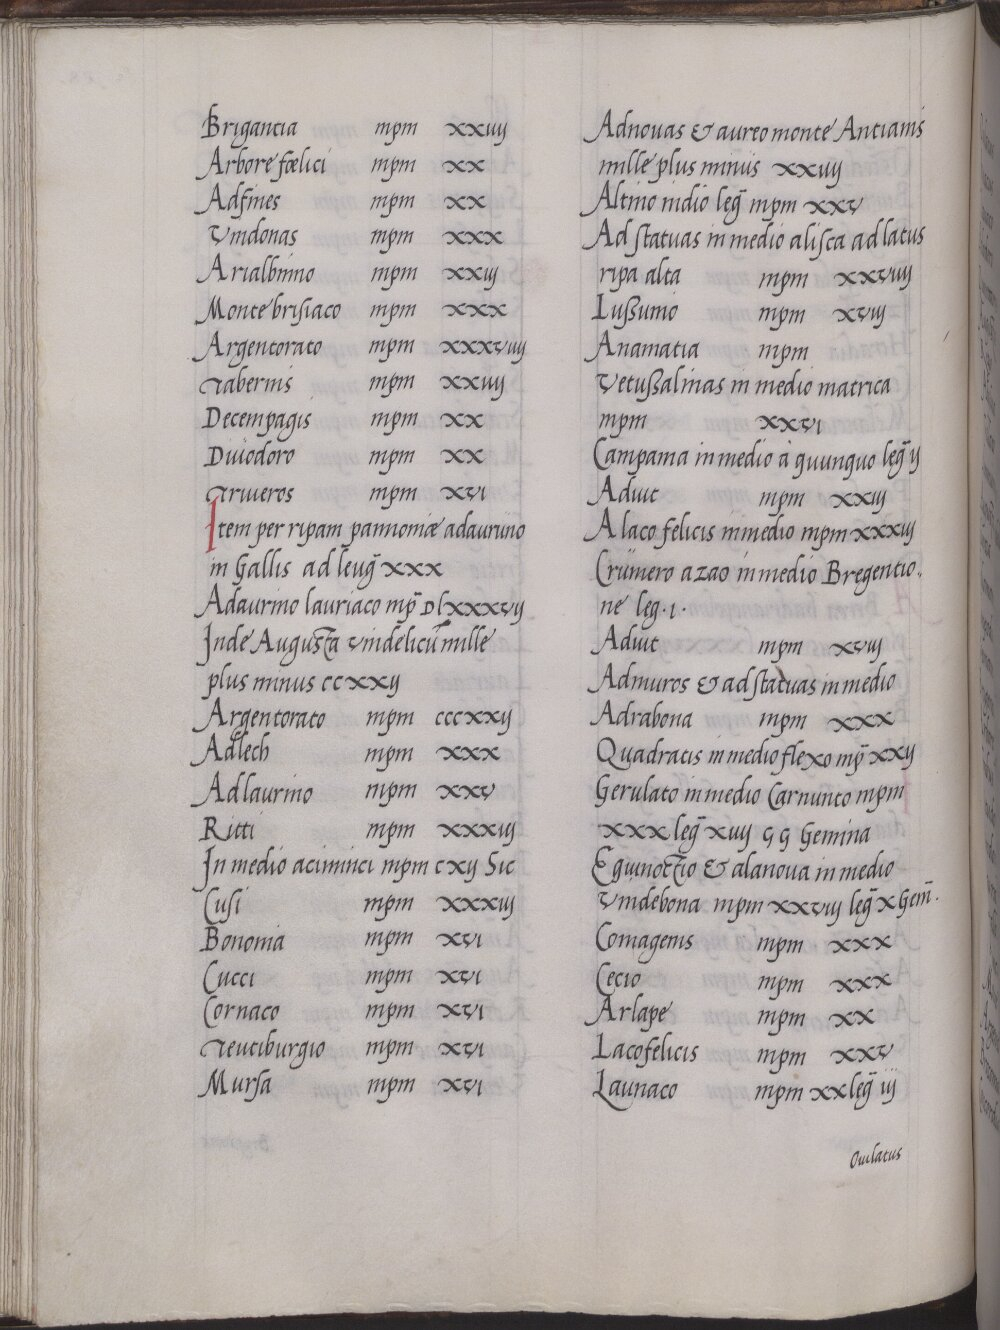 Brigantia mpm xxiiij
Arbore fœlici mpm xx
Adfines mpm xx
Vindonas mpm xxx
Arialbinno mpm xxiij
Monte brisiaco mpm xxx
Argentorato mpm xxxviiij
Tabernis mpm xxiiij
Decempagis mpm xx
Diuodoro mpm xx
Triueros mpm xvi
Item per ripam pannoniæ ad auruno
in Gallis ad leug̃ xxx
Adaurino lauriaco mp̃ Dlxxxvij
Inde Augusta vindelicũ mille
plus minus ccxxij
Argentorato mpm cccxxij
Adlech mpm xxx
Adlaurino mpm xxv
Ritti mpm xxxiij
In medio aciminci mpm cxij Sic
Cusi mpm xxxiij
Bononia mpm xvi
Cucci mpm xvi
Cornaco mpm xvi
Teutiburgio mpm xvi
Mursa mpm xvi
Adnouas & aureo monte Antianis
mille plus minus xxiiij
Altino inidio leg̃ mpm xxv
Ad statuas in medio alisca ad latus
ripa alta mpm xxviiij
Lussunio mpm xviij
Anamatia mpm
Vetussalinas in medio matrica
mpm xxvi
Campama in medio à quunquo leg̃ ij
Adiuit mpm xxiij
Alaco felicis in medio mpm xxxiij
Crumero azao in medio Bregentio..
ne leg. i.
Adiuit mpm xviij
Admuros & ad statuas in medio
Adrabona mpm xxx
Quadratis in medio flexo mp̃ xxij
Gerulato in medio Carnunto mpm
xxx leg̃ xiiij GG Gemina
Equinoctio & alanoua in medio
Vindebona mpm xxviij leg̃ x Gem̃.
Comagenis mpm xxx
Cecio mpm xxx
Arlape mpm xx
Lacofelicis mpm xxv
Lauriaco mpm xx leg̃ iij
Ouilatus